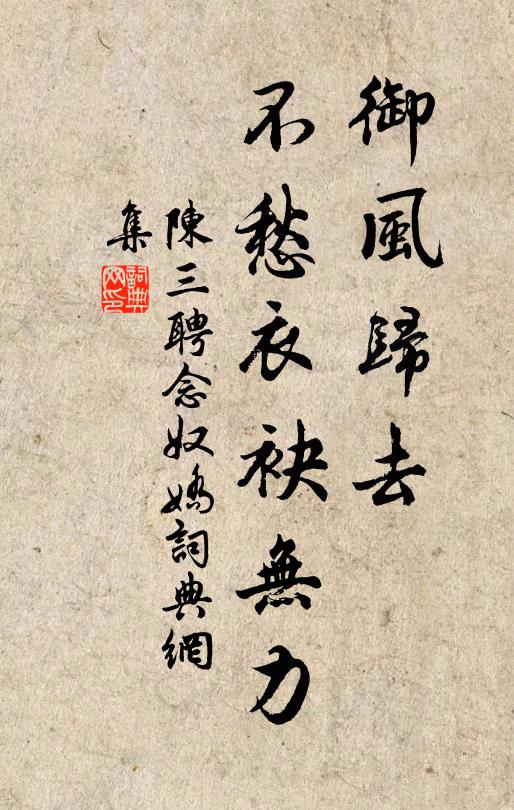 御風歸去
不愁衣袂無力
陳三聘念奴嬌詞典網
集
詞典
網印